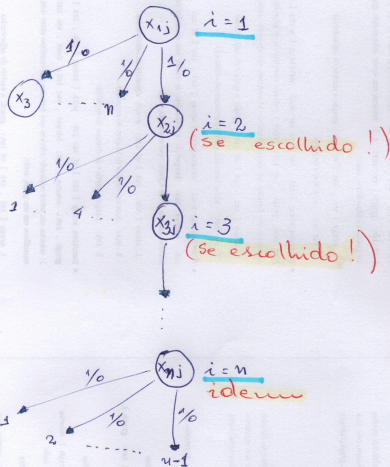 x1j i = 1
1/0 1/0 1/0
x3 ...... n
x2j i = 2
(se escolhido!)
1/0 1/0
1 ... 4 ....
x3j i = 3
(se escolhido!)
xnj i = n
idem
1/0 1/0 1/0
1 2 ........ n-1